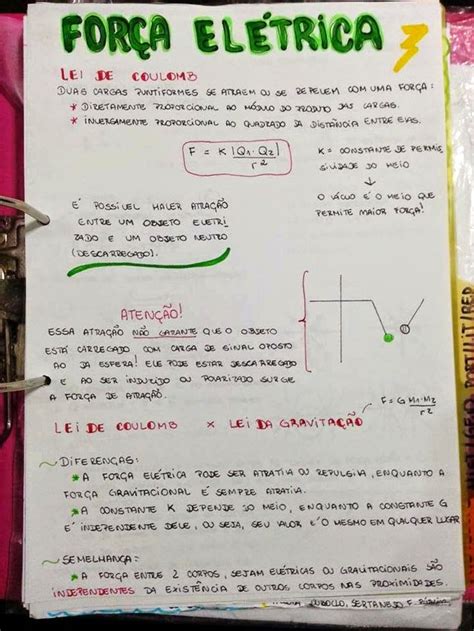 FORÇA ELÉTRICA
LEI DE COULOMB
DUAS CARGAS PUNTIFORMES SE ATRAEM OU SE REPELEM COM UMA FORÇA:
* DIRETAMENTE PROPORCIONAL AO MÓDULO DO PRODUTO DAS CARGAS.
* INVERSAMENTE PROPORCIONAL AO QUADRADO DA DISTÂNCIA ENTRE ELAS.
F = K |Q1 · Q2| / r²
K = CONSTANTE DE PERMIS
SIVIDADE DO MEIO
↓
O VÁCUO É O MEIO QUE
PERMITE MAIOR FORÇA!
É POSSÍVEL HAVER ATRAÇÃO
ENTRE UM OBJETO ELETRI
ZADO E UM OBJETO NEUTRO
(DESCARREGADO).
ATENÇÃO!
ESSA ATRAÇÃO NÃO GARANTE QUE O OBJETO
ESTÁ CARREGADO COM CARGA DE SINAL OPOSTO
AO DA ESFERA! ELE PODE ESTAR DESCARREGADO
E AO SER INDUZIDO OU POLARIZADO SURGE
A FORÇA DE ATRAÇÃO.
F = G M1·M2 / r²
LEI DE COULOMB x LEI DA GRAVITAÇÃO
~ DIFERENÇAS:
* A FORÇA ELÉTRICA PODE SER ATRATIVA OU REPULSIVA, ENQUANTO A
FORÇA GRAVITACIONAL É SEMPRE ATRATIVA.
* A CONSTANTE K DEPENDE DO MEIO, ENQUANTO A CONSTANTE G
É INDEPENDENTE DELE, OU SEJA, SEU VALOR É O MESMO EM QUALQUER LUGAR
~ SEMELHANÇA:
* A FORÇA ENTRE 2 CORPOS, SEJAM ELÉTRICAS OU GRAVITACIONAIS SÃO
INDEPENDENTES DA EXISTÊNCIA DE OUTROS CORPOS NAS PROXIMIDADES.
SERTANEJO